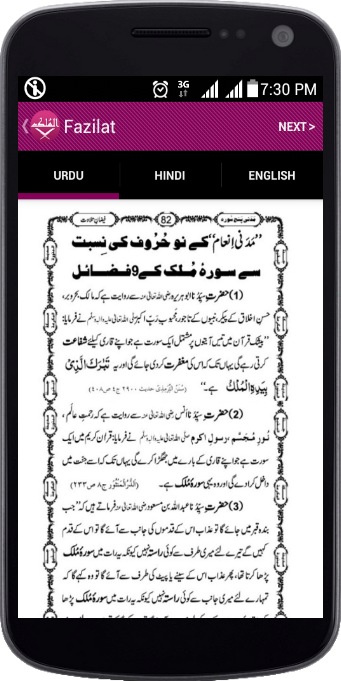 3G
7:30 PM
المُلك
Fazilat
NEXT>
URDU
HINDI
ENGLISH
فیضانِ تلاوت
82
مدنی پنج سورہ
”مَدَنی اِنعام“ کے نو حُرُوف کی نِسبت
سے سورۂ مُلک کے 9 فضائل
(1) حضرتِ سیّدُنا ابوہریرہ رضی اللہ تعالیٰ عنہ سے روایت ہے کہ مالکِ بحر و بر،
حسنِ اخلاق کے پیکر، نبیوں کے تاجور، محبوبِ ربِّ اکبر صلی اللہ تعالیٰ علیہ والہٖ وسلم نے فرمایا:
”بیشک قرآن میں تیس آیتوں پر مشتمل ایک سورت ہے جو اپنے قاری کیلئے شفاعت
کرتی رہے گی یہاں تک کہ اس کی مغفرت کر دی جائے گی اور یہ تَبٰرَكَ الَّذِیْ
بِیَدِهِ الْمُلْكُ ہے۔“ (سُنَنُ التِّرْمِذِی حدیث ۲۹۰۰ ج ٤ ص ٤٠٨)
(2) حضرتِ سیّدُنا انس رضی اللہ تعالیٰ عنہ سے روایت ہے کہ رحمتِ عالَم،
نورِ مُجَسَّم، رسولِ اکرم صلی اللہ تعالیٰ علیہ والہٖ وسلم نے فرمایا: قرآنِ کریم میں ایک
سورت ہے جو اپنے قاری کے بارے میں جھگڑا کرے گی یہاں تک کہ اسے جنّت میں
داخل کرا دے گی اور وہ یہی سورۂ مُلک ہے۔ (الدُّرُّ الْمَنْثُور ج ۸ ص ۲۳۳)
(3) حضرتِ سیّدُنا عبداللہ بن مسعود رضی اللہ تعالیٰ عنہ فرماتے ہیں کہ ”جب
بندہ قبر میں جائے گا تو عذاب اس کے قدموں کی جانب سے آئے گا تو اس کے قدم
کہیں گے تیرے لئے میری طرف سے کوئی راستہ نہیں کیونکہ یہ رات میں سورۂ مُلک
پڑھا کرتا تھا، پھر عذاب اس کے سینے یا پیٹ کی طرف سے آئے گا تو وہ کہے گا کہ
تمہارے لئے میری جانب سے کوئی راستہ نہیں کیونکہ یہ رات میں سورۂ مُلک پڑھا